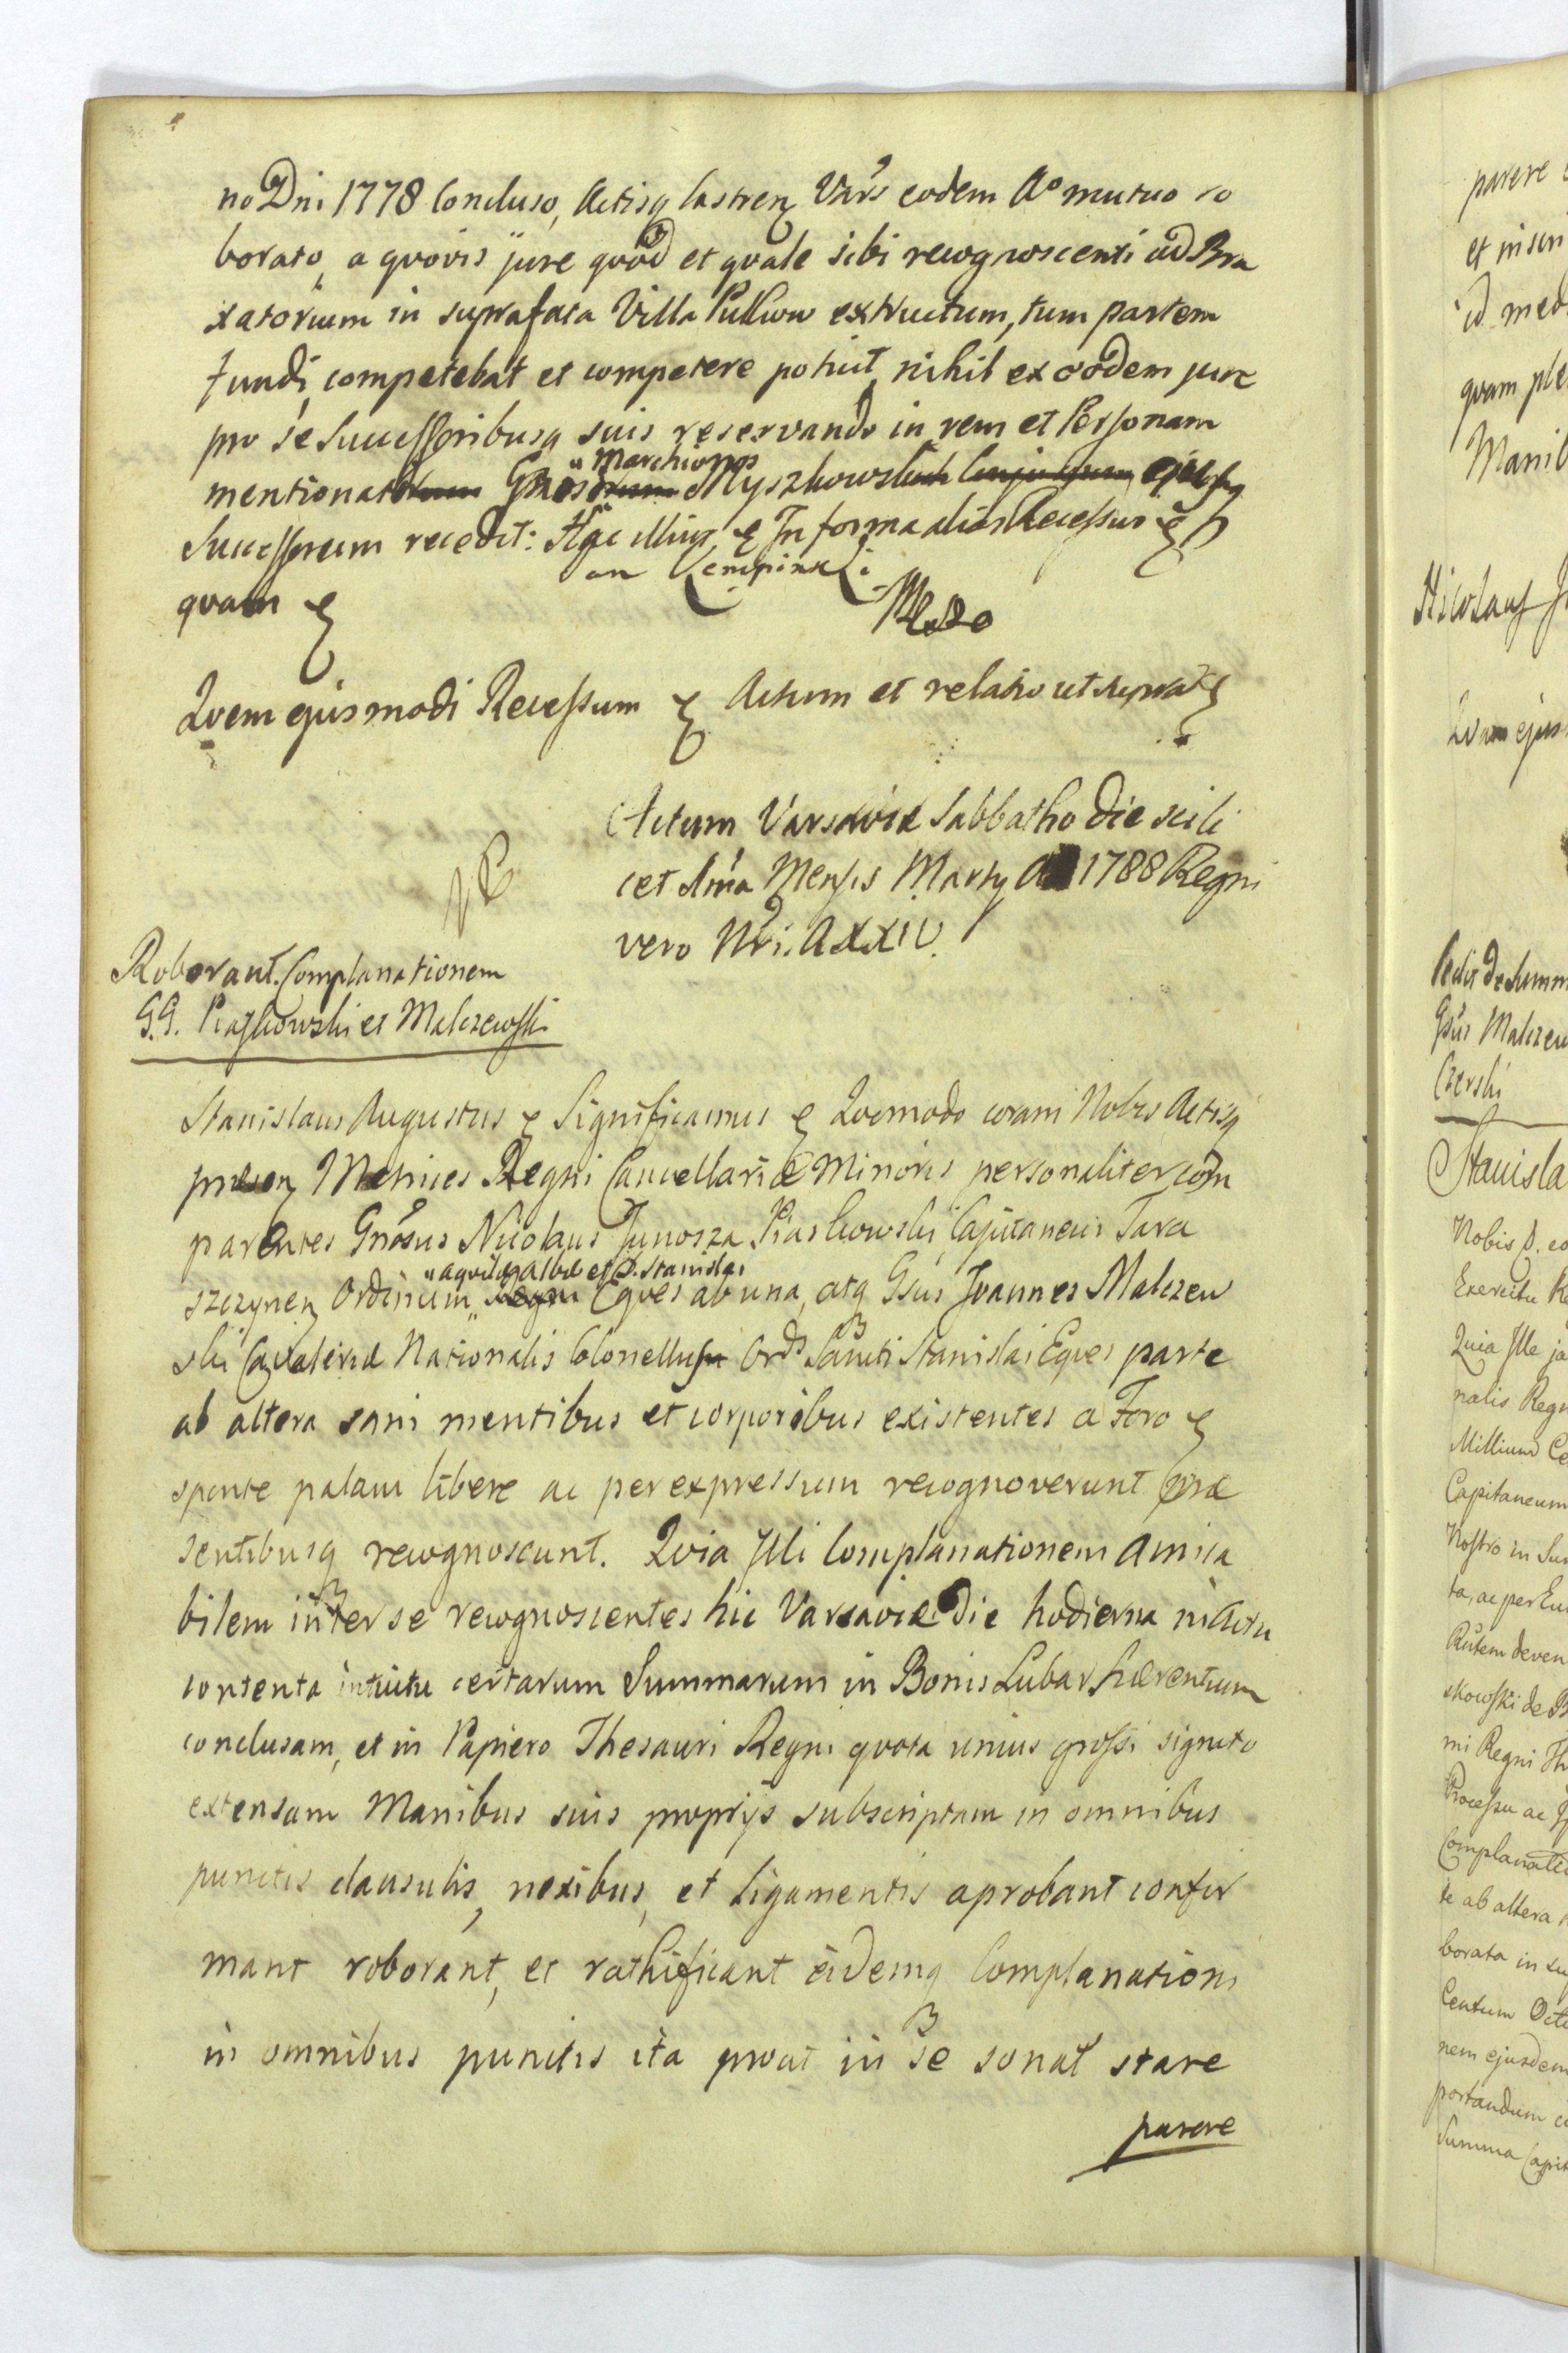 no Dni 1778 Concluso, Actisq Castren Vars eodem Ao mutuo ro
borato, a quovis jure quod et quale sibi recognoscenti ad Bra
xatorium in suprafata Villa Pulkow extructum, tum partem
fundi, competebat et competere potuit, nihil ex eodem jure
pro se Successoribusq suis reservando in rem et Personam
Marchionis
mentionat Gnosi Myszkowski ejusq
Successorum recedit: Hac illius In forma alias Recessus
quam
Kempinski
Quem ejusmodi Recessum Actum et relatio ut supra
Actum Varsaviæ Sabbatho die scili
cet Ama Mensis Martij A 1788 Regni
vero Nri. A XXIV.
Roborant. Complanationem
G.G. Piaskowski et Malczewski
Stanislaus Augustus Significamus Quomodo coram Nobis Actisq
presen Metrices Regni Cancellariæ Minoris personaliter com
parentes Gnosus Nicolaus Junosza Piaskowski Capitaneus Tara
aquilæ Albæ et S. Stanislai
szczynen Ordinum Regni Eques ab una, atq Gsus Joannes Malczew
ski Cavaleriæ Nationalis Colonellus Ords Sancti Stanislai Eques parte
ab altera sani mentibus et corporibus existentes a Foro
sponte palam libere ac per expressum recognoverunt præ
sentibusq recognoscunt. Quia Illi Complanationem amica
bilem inter se recognoscentes hic Varsaviæ Die hodierna in Actu
contenta intuitu certarum Summarum in Bonis Lubar hærentium
conclusam, et in Papiero Thesauri Regni quota unius grossi signato
extensam Manibus suis proprijs subscriptam in omnibus
punctis clausulis, nexibus, et ligamentis aprobant confir
mant roborant, et rathificant eidemq Complanationi
in omnibus punctis ita prout in se sonat stare
parere
parere
et in sin
id med
quam ple
Manib
Nicolaus J
Quam ejus
Gsus Malczew
Czerski
Stanisla
Nobis
Exercitu Re
Quia Ille ja
nalis Regn
Millium Ce
Capitaneum
Nostro in Su
ta, ac per Eu
Rutem deven
skowski de B
mi Regni Th
Processu ac
Complanatio
te ab altera
borata in su
Centum Octo
nem ejusdem
portandum
Summa Capit